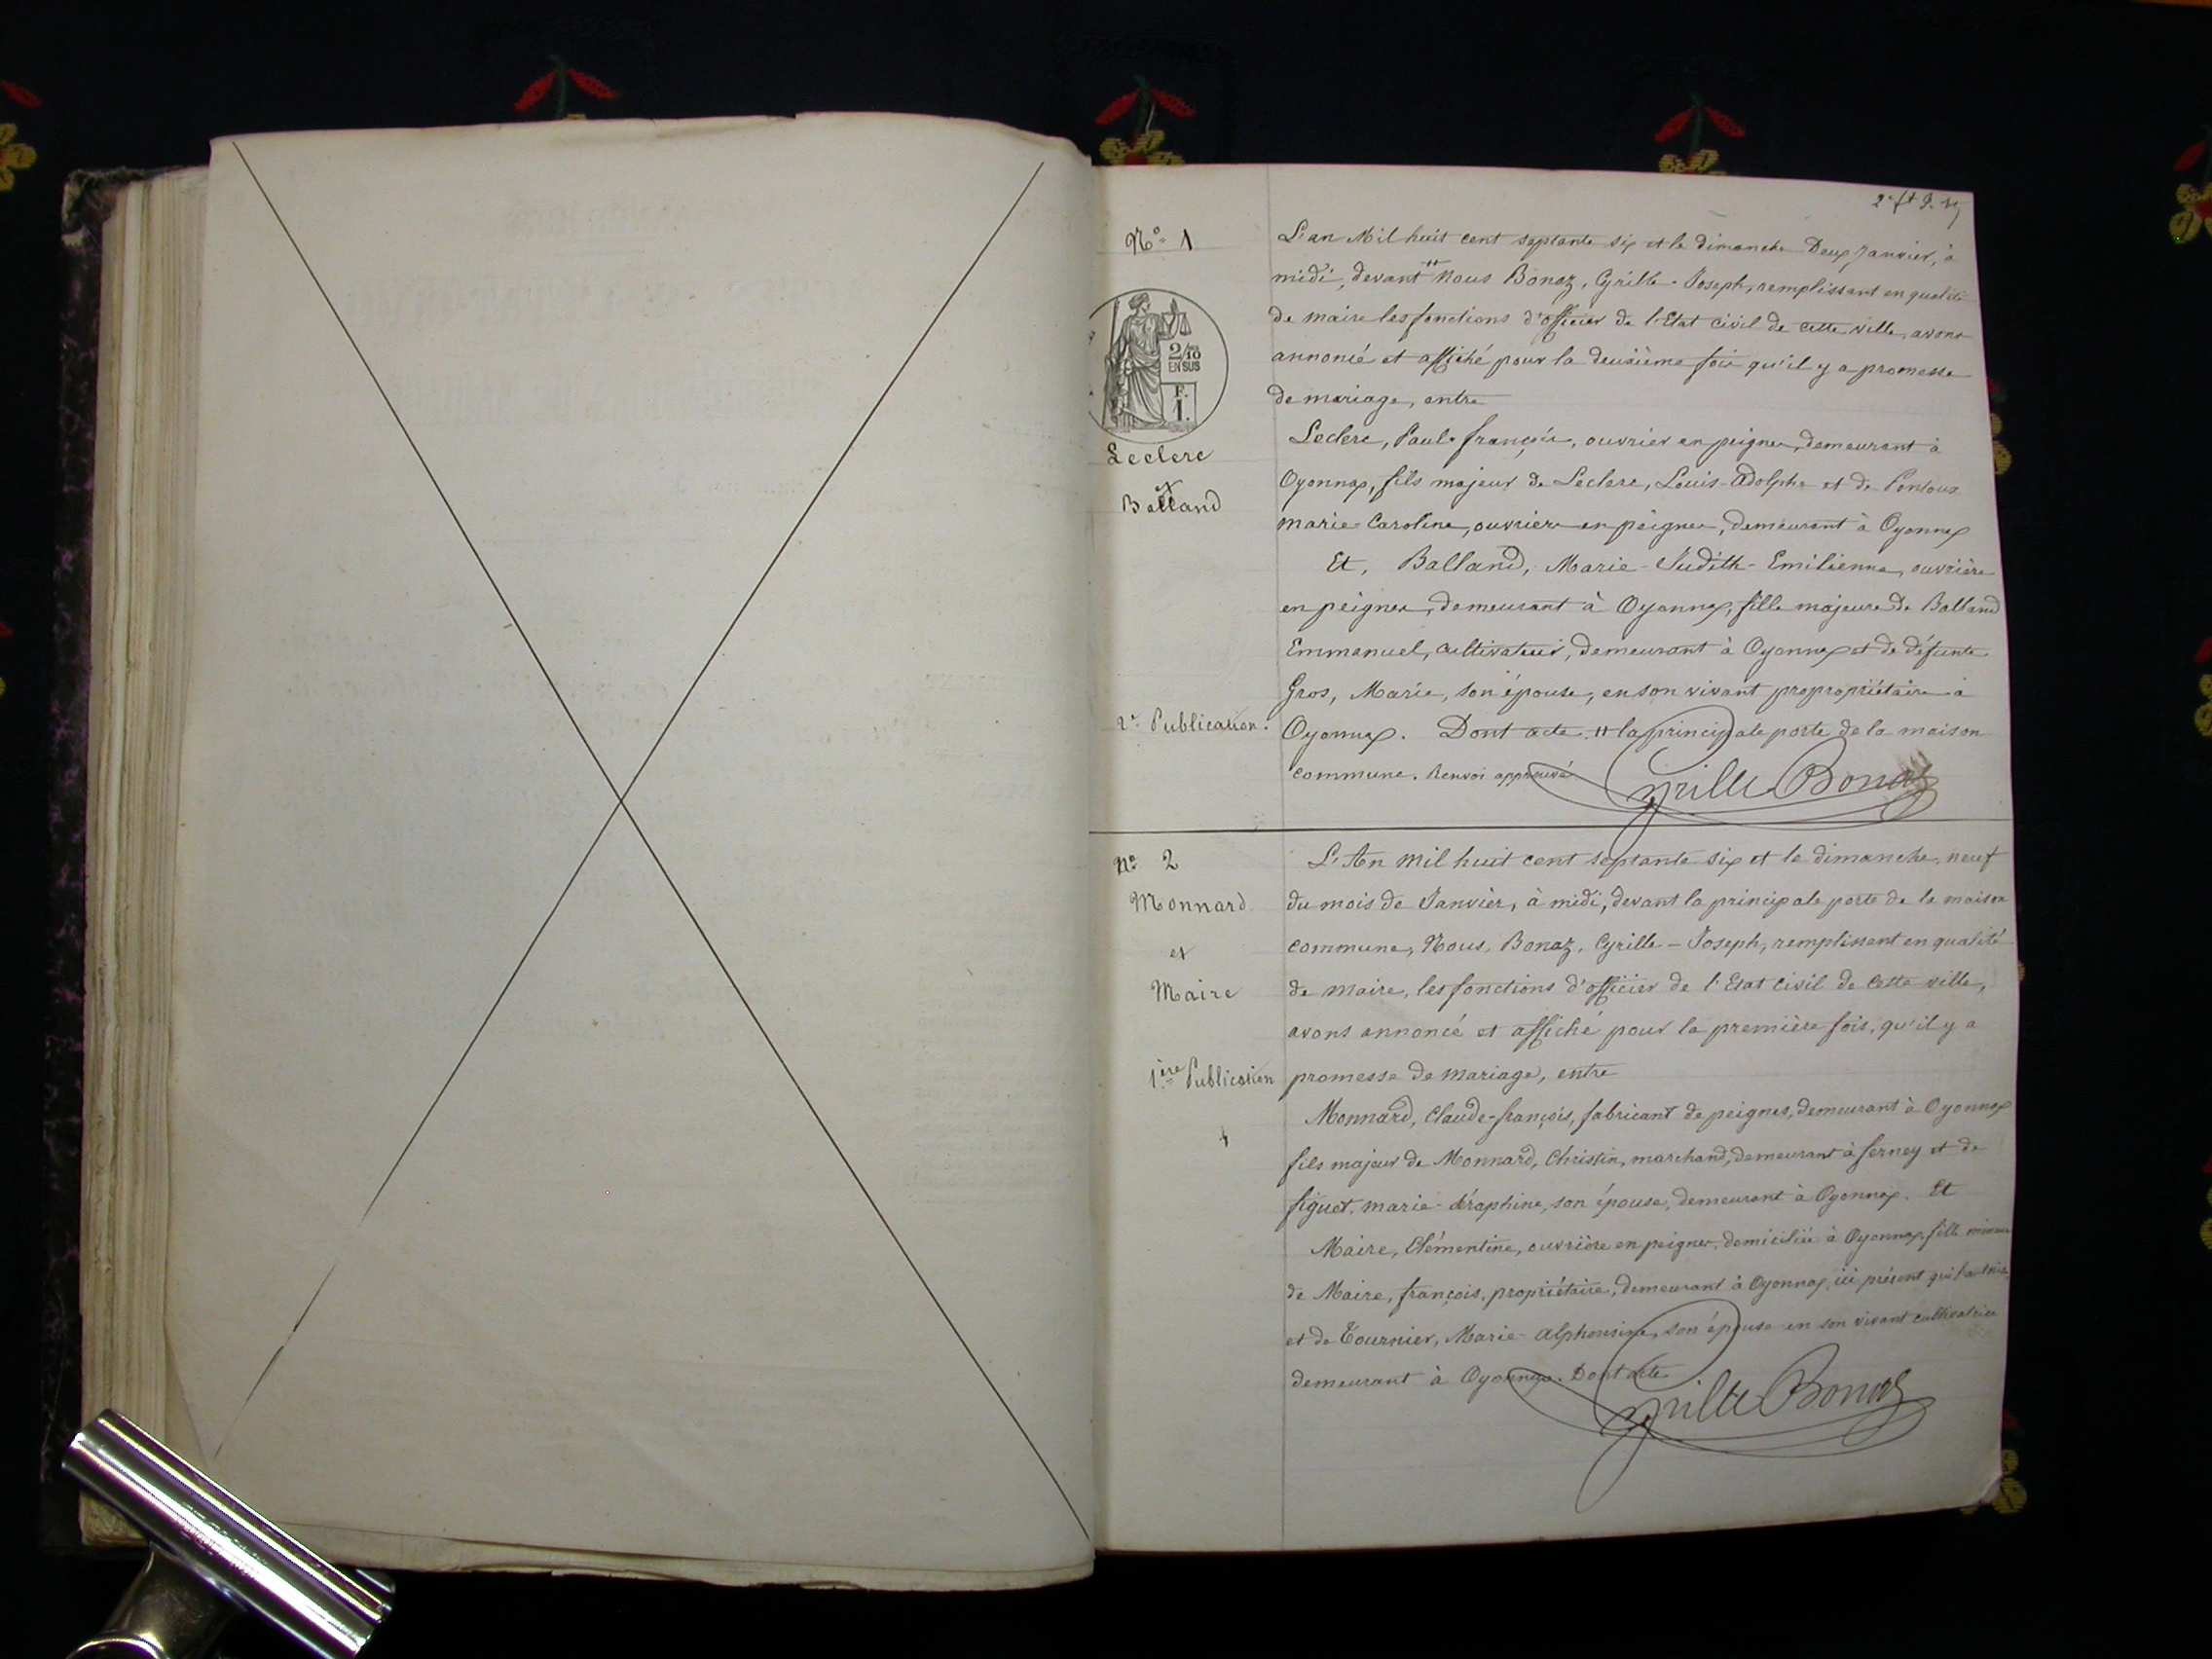 N° 1
2/10
EN SUS
F.
1.
Leclerc
et
Balland
2e Publication.
L'an Mil huit cent septante six et le dimanche Deux Janvier, à
midi, devant # Nous Bonaz, Cyrille-Joseph, remplissant en qualité
de maire les fonctions d'officier de l'Etat civil de cette ville, avons
annoncé et affiché pour la deuxième fois qu'il y a promesse
de mariage, entre
Leclerc, Paul-françois, ouvrier en peignes, demeurant à
Oyonnax, fils majeur de Leclerc, Louis-Adolphe et de
marie-Caroline, ouvrière en peignes, demeurant à Oyonnax
Et, Balland, Marie-Judith-Emilienne, ouvrière
en peignes, demeurant à Oyonnax, fille majeure de Balland
Emmanuel, cultivateur, demeurant à Oyonnax et de défunte
Gros, Marie, son épouse, en son vivant propropriétaire à
Oyonnax. Dont acte. # la principale porte de la maison
commune. Renvoi approuvé
Cyrille Bonaz
N° 2
Monnard
et
Maire
1ère Publication
L'An mil huit cent septante six et le dimanche, neuf
du mois de Janvier, à midi, devant la principale porte de la maison
commune, Nous, Bonaz, Cyrille-Joseph, remplissant en qualité
de maire, les fonctions d'officier de l'Etat civil de cette ville,
avons annoncé et affiché pour la première fois, qu'il y a
promesse de mariage, entre
Monnard, Claude-françois, fabricant de peignes, demeurant à Oyonnax
fils majeur de Monnard, Christin, marchand, demeurant à ferney et de
figuet, marie-séraphine, son épouse, demeurant à Oyonnax. Et
Maire, Clémentine, ouvrière en peignes, domiciliée à Oyonnax, fille mineure
de Maire, françois, propriétaire, demeurant à Oyonnax, ici présent qui l'autorise
et de Tournier, Marie-Alphonsine, son épouse en son vivant cultivatrice
demeurant à Oyonnax. Dont acte
Cyrille Bonaz